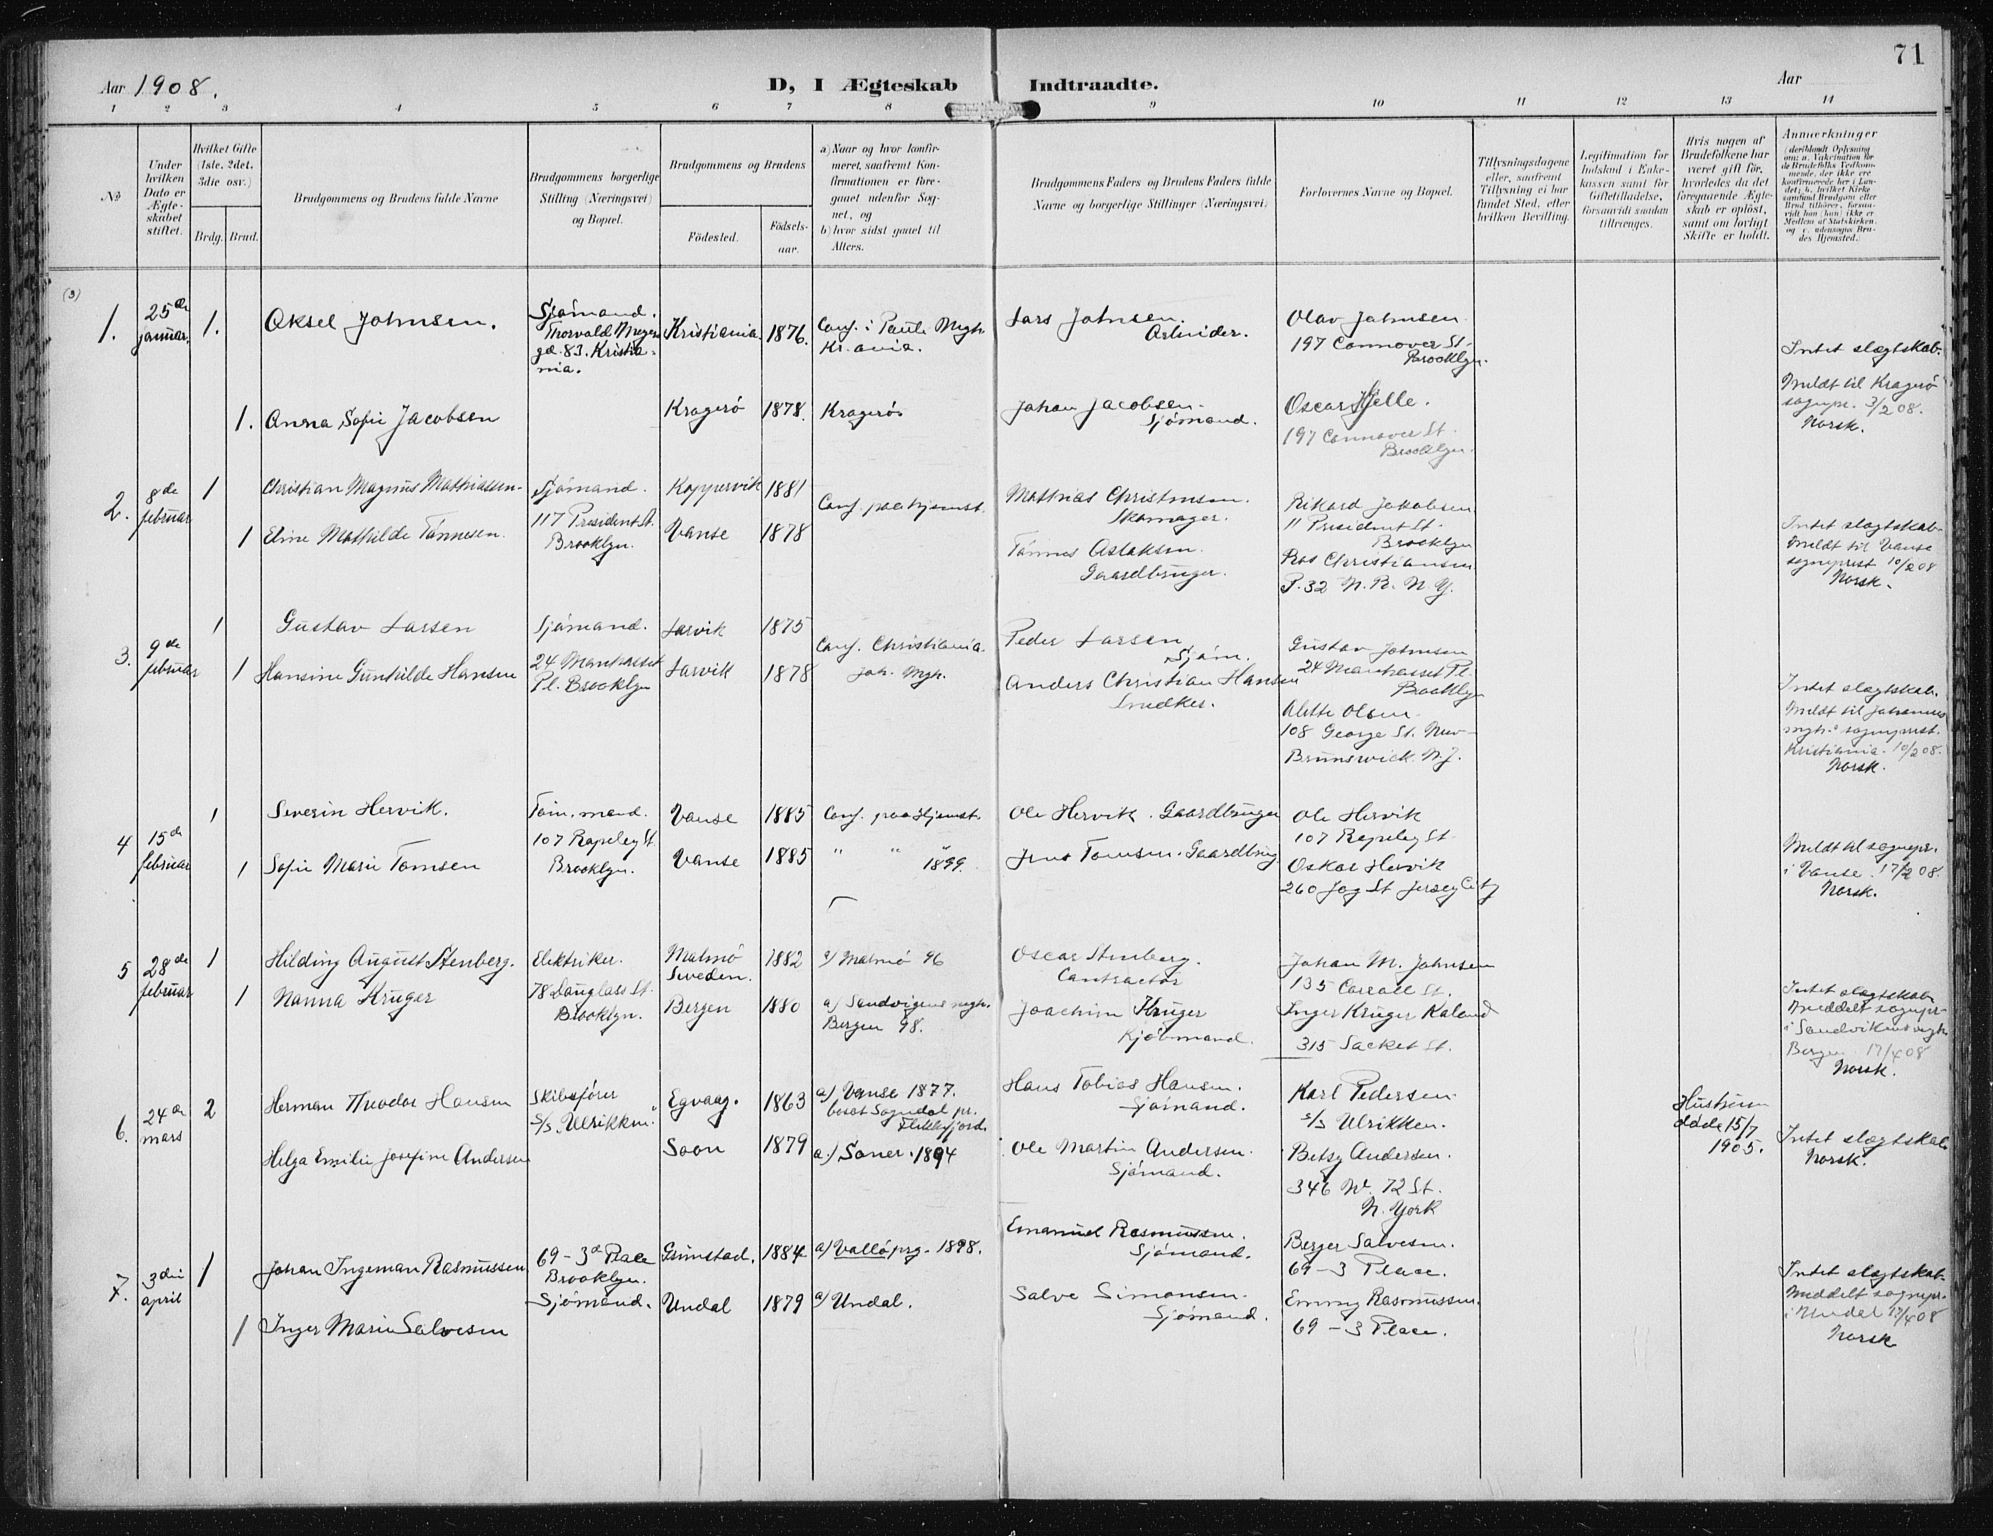 71
Aar 1908.
D, I Ægteskab Indtraadte.
Aar
1 2 3 4 5 6 7 8 9 10 11 12 13 14
No
Under hvilken Dato er Ægteskabet stiftet.
Hvilket Gifte (1ste, 2det, 3die osv.)
Brdg. Brud.
Brudgommens og Brudens fulde Navne
Brudgommens borgerlige Stilling (Næringsvei) og Bopæl.
Brudgommens og Brudens
Fødested.
Fødselsaar.
a) Naar og hvor konfirmeret, saafremt Konfirmationen er foregaaet udenfor Sognet, og
b) hvor sidst gaaet til Alters.
Brudgommens Faders og Brudens Faders fulde Navne og borgerlige Stillinger (Næringsvei)
Forlovernes Navne og Bopæl.
Tillysningsdagene eller, saafremt Tillysning ei har fundet Sted, efter hvilken Bevilling.
Legitimation for Indskud i Enkekassen samt for Giftetilladelse, forsaavidt saadan tiltrænges.
Hvis nogen af Brudefolkene har været gift før, hvorledes da det foregaaende Ægteskab er opløst, samt om lovligt Skifte er holdt.
Anmærkninger
(deriblandt Oplysning om: a. Vakcination for de Brudefolks Vedkommende, der ikke ere konfirmerede her i Landet; b. hvilket Kirkesamfund Brudgom eller Brud tilhører, forsaavidt han (hun) ikke er Medlem af Statskirken, og c. udensogns Brudes Hjemsted.)
(3)
1. 25de januar. 1. Aksel Johnsen.
Sjømand. Thorvald Meyers gd. 83. Kristiania.
Kristiania. 1876. Conf. i Pauls Mgh. Kr.ania.
Lars Johnsen. Arbeider.
Olav Johnsen 197 Connover St. Brooklyn.
1. Anna Sofie Jacobsen
Kragerø 1878. Kragerø
Johan Jacobsen. Sjømand.
Oscar Hjelle. 197 Connover St. Brooklyn.
Intet slægtskab.
Meldt til Kragerø sognepr. 3/2 08. Norsk.
2. 8de februar 1 Christian Magnus Mathiassen.
Sjømand. 117 President St. Brooklyn.
Koppervik 1881 Conf. paa hjemst.
Mathias Christensen. Skomager.
Rikard Jakobsen 11 President St. Brooklyn
1 Eline Mathilde Tønnesen.
Vanse 1878
Tønnes Aslaksen. Gaardbruger.
Ras Christiansen P. 32 N. R. N. Y.
Intet slægtskab. Meldt til Vanse sogneprest 10/2 08 Norsk.
3. 9de februar 1 Gustav Larsen
Sjømand. 24 Manhasset Pl. Brooklyn
Larvik 1875 Conf. Christiania. Joh. Mgh.
Peder Larsen Sjøm.
Gustav Johnsen 24 Manhasset Pl. Brooklyn
1 Hansine Gunhilde Hansen
Larvik 1878
Anders Christian Hansen Snedker.
Alette Olsen 108 George St. New-Brunswick N.J.
Intet slægtskab. Meldt til Johannes mgh.s sogneprest. Kristiania. 10/2 08. Norsk.
4 15de februar 1 Severin Hervik.
Tøm.mand. 107 Rapeley St. Brooklyn.
Vanse 1885 Conf. paa Hjemst.
Ole Hervik. Gaardbruger
Ole Hervik 107 Rapeley St.
1 Sofie Marie Tomsen
Vanse 1885 " " " 1899.
Jens Tomsen. Gaardbrug
Oskar Hervik 260 Jay St Jersey City
Meldt til sognepr. i Vanse. 17/2 08. Norsk.
5 28de februar 1 Hilding August Stenberg.
Elektriker. 78 Douglass St. Brooklyn.
Malmö Sweden. 1882 a/ Malmö 96
Oscar Stenberg. Contractor
Johan M. Johnsen 135 Carroll St.
1 Nanna Krüger
Bergen 1880 a/ Sandvigens mgh. Bergen 98.
Joachim Krüger Kjøbmand.
Inger Krüger Kaland 315 Sacket St.
Intet slægtskab. Meddelt sognepr. i Sandvikens mgh Bergen 17/4 08 Norsk.
6. 24de mars 2 Herman Theodor Hansen
Skibsfører S/S "Ulrikken"
Egvaag. 1863 a/ Vanse 1877. bosat Sogndal pr. Flekkefjord.
Hans Tobias Hansen. Sjømand.
Karl Pedersen S/S Ulrikken.
Hustruen døde 15/7 1905.
Helga Emilie Josefine Andersen
Soon 1879 a/ Soner. 1894
Ole Martin Andersen. Sjømand.
Betsy Andersen. 346 W. 72 St. N. York
Intet slægtskab. Norsk.
7. 3die april 1 Johan Ingeman Rasmussen
69 - 3d Place Brooklyn. Sjømand.
Grimstad. 1884 a/ Vallø prg. 1898.
Emanuel Rasmussen. Sjømand.
Berger Salvesen. 69 - 3 Place.
1 Inger Marie Salvesen
Undal 1879 a/ Undal.
Salve Simonsen. Sjømand.
Emmy Rasmussen. 69 - 3 Place.
Intet slægtskab. Meddelt sognepr. i Undal 17/4 08 Norsk